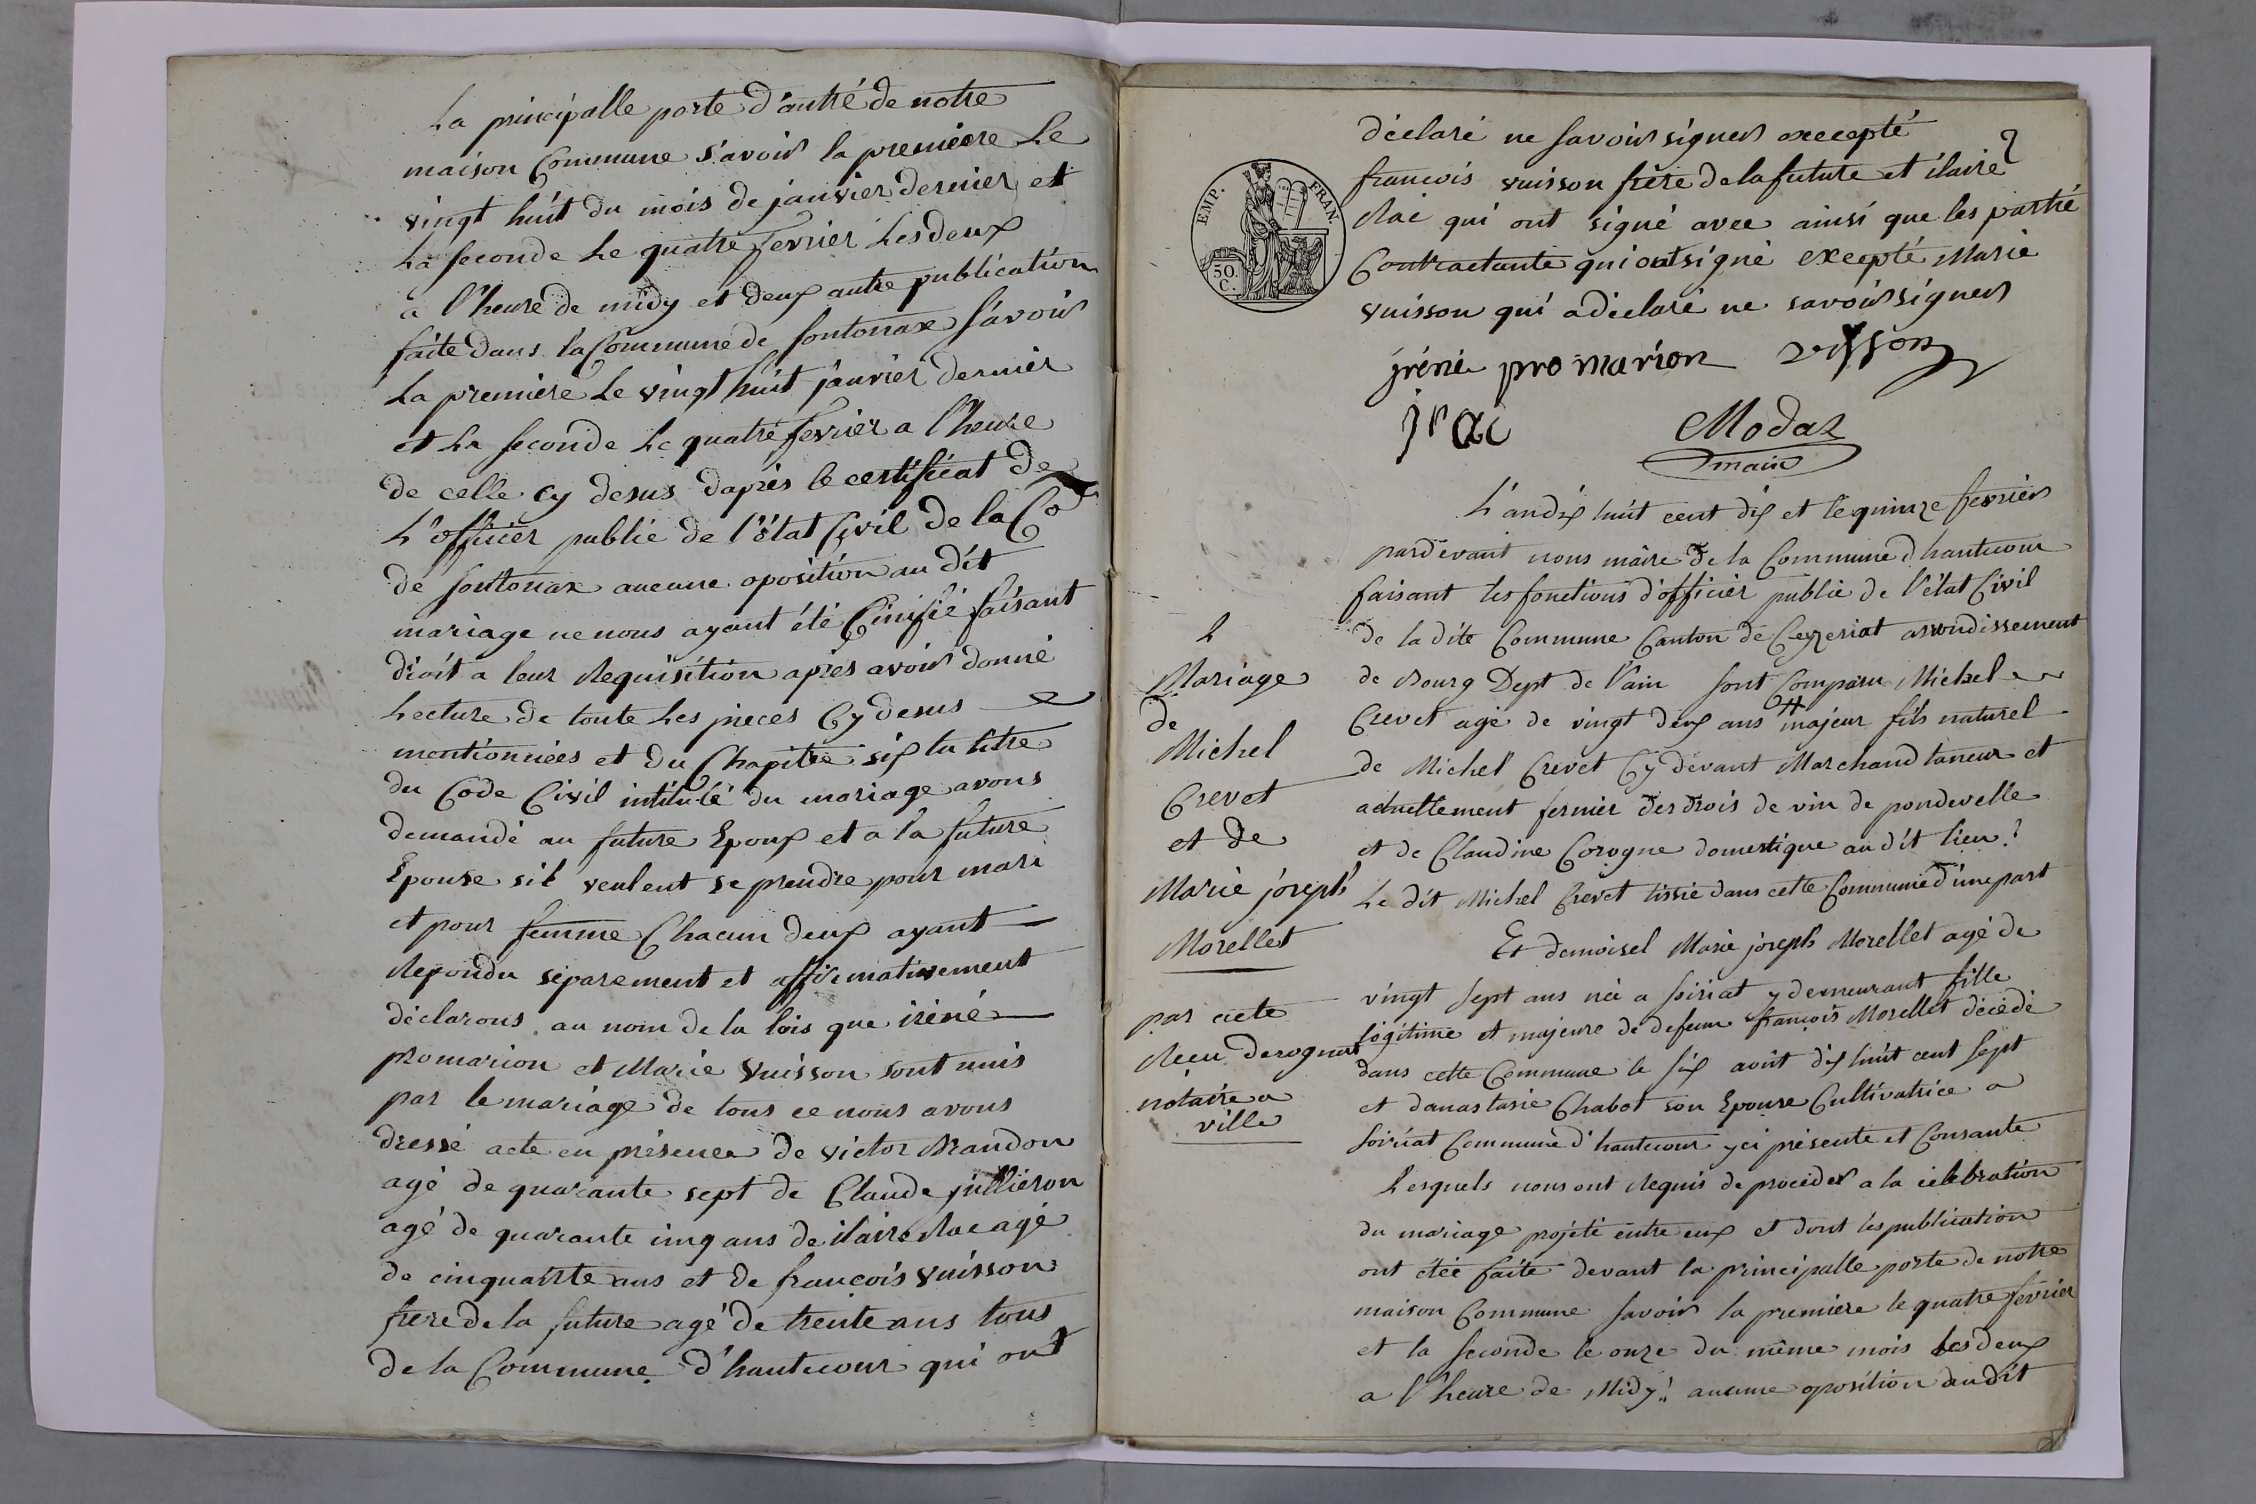 La principalle porte d'antré de notre
maison Commune s'avoir la premiere Le
vingt huit du mois de janvier dernier et
La seconde Le quatre fevrier Les deux
a l'heure de midy et deux autre publication
faite dans la Commune de soutonax s'avoir
La premiere Le vingt huit janvier dernier
et La seconde Le quatre fevrier a l'heure
de celle cy desus daprés le certificat de
L'officier public de l'état Civil de la Co
de soutonax aucune oposition au dit
mariage ne nous ayant été Cinifié faisant
droit a leur Requisition aprés avoir donné
Lecture de toute Les pieces Cy desus
mentionnées et du Chapitre six tu titre
du Code Civil intitulé du mariage avons
demandé au future Epoux et a la future
Epouse sil veulent se prendre pour mari
et pour femme Chacun deux ayant
Repondu séparement et affirmativement
déclarons au nom de la lois que iréné
promarion et Marie Vuisson sont unis
par le mariage de tous ce nous avons
dressé acte en présence de victor Brandon
agé de quarante sept de Claude jullieron
agé de quarante cinq ans de ilaire Rac agé
de cinquante ans et de francois Vuisson
frere de la future agé de trente ans tous
de la Commune d'hautecour qui ont
EMP. FRAN.
30.
C.
déclaré ne savoir signer excepté
francois vuisson frére de la future et ilaire
Rac qui ont signé avec ainsi que les partié
Contractante qui ont signé excepté Marie
vuisson qui a déclaré ne savoir signer
jréné promarion Visson
jrac
Modas
maire
L'an dix huit cent dix et le quinze fevrier
pardevant nous maire de la Commune d'hautecour
faisant les fonctions d'officier public de l'état Civil
de la dite Commune Canton de Ceyzeriat arrondissement
de Bourg Dept de l'ain sont Comparu Michel
Crevet agé de vingt deux ans majeur fils naturel
de Michel Crevet Cy devant Marchand taneur et
actuellement fermier des drois de vin de pondevelle
et de Claudine Corogne domestique au dit lieu
Le dit Michel Crevet tissié dans cette Commune d'une part
Et demoisel Marie joseph Morellet agé de
vingt sept ans née a soiriat y demeurant fille
légitime et majeure de defeun francois Morellet décédé
dans cette Commune le six août dix huit cent sept
et danastasie Chabot son Epouse Cultivatrice a
soiriat Commune d'hautecour yci présente et Consante
Lesquels nous ont Requis de procéder a la célebration
du mariage projeté entre eux et dont les publication
ont étée faite devant la principalle porte de notre
maison Commune savoir la premiere le quatre fevrier
et la seconde le onze du même mois les deux
a l'heure de Midy aucune oposition audit
2
Mariage
de
Michel
Crevet
et de
Marie joseph
Morellet
par acte
Recu
notaire a
ville